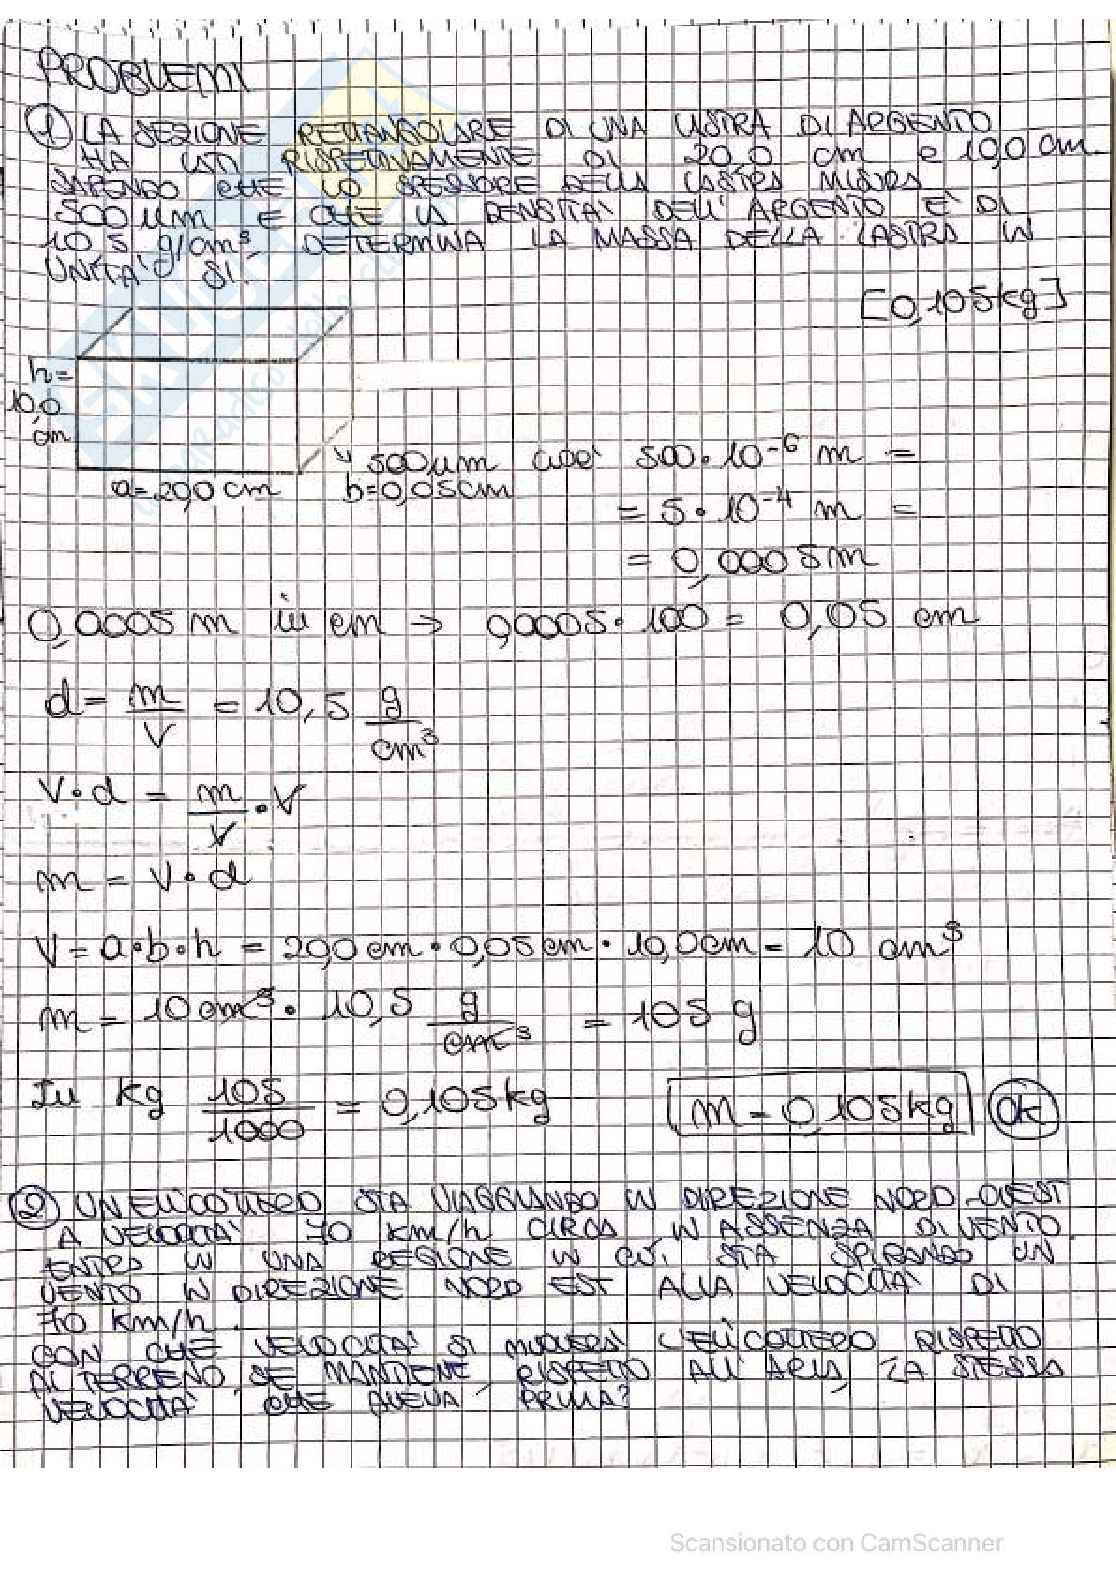 PROBLEMI
① LA SEZIONE RETTANGOLARE DI UNA LASTRA DI ARGENTO
HA LATI RISPETTIVAMENTE DI 20,0 cm e 10,0 cm.
SAPENDO CHE LO SPESSORE DELLA LASTRA MISURA
500 µm E CHE LA DENSITA' DELL'ARGENTO E' DI
10,5 g/cm³, DETERMINA LA MASSA DELLA LASTRA IN
UNITA' SI.
[0,105 kg]
h =
10,0
cm
a = 20,0 cm
500 µm cioè 500 · 10⁻⁶ m =
b = 0,05 cm
= 5 · 10⁻⁴ m =
= 0,0005 m
0,0005 m in cm → 0,0005 · 100 = 0,05 cm
d = m/V = 10,5 g/cm³
V · d = m/V · V
m = V · d
V = a · b · h = 20,0 cm · 0,05 cm · 10,0 cm = 10 cm³
m = 10 cm³ · 10,5 g/cm³ = 105 g
In kg 105/1000 = 0,105 kg m = 0,105 kg OK
② UN ELICOTTERO STA VIAGGIANDO IN DIREZIONE NORD-OVEST
A VELOCITA' 70 km/h CIRCA IN ASSENZA DI VENTO.
ENTRA IN UNA REGIONE IN CUI STA SPIRANDO UN
VENTO IN DIREZIONE NORD EST ALLA VELOCITA' DI
70 km/h.
CON CHE VELOCITA' SI MUOVERA' L'ELICOTTERO RISPETTO
AL TERRENO, SE MANTIENE, RISPETTO ALL'ARIA, LA STESSA
VELOCITA' CHE AVEVA PRIMA?
Scansionato con CamScanner